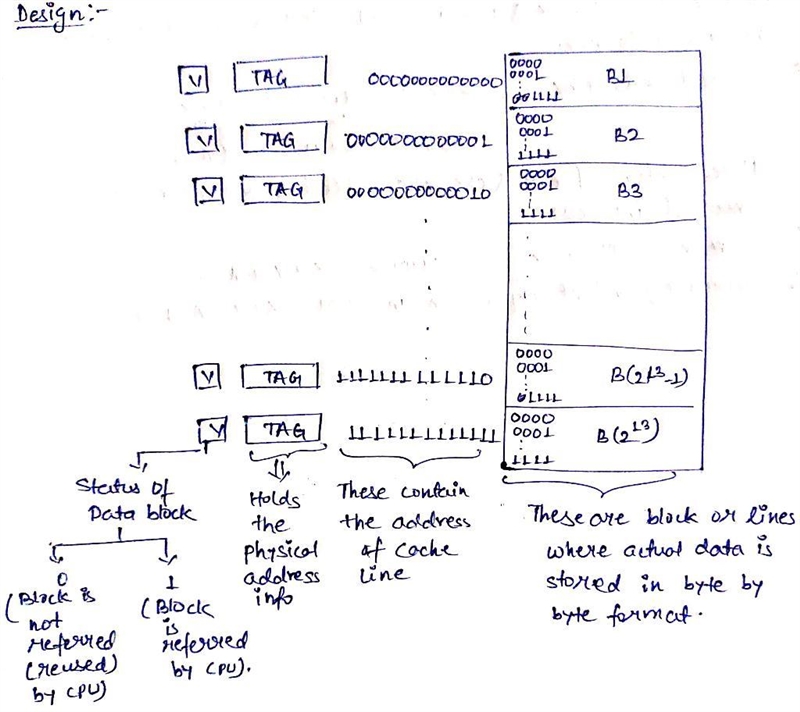 Design:-
V TAG 0000000000000 0000 0001 001111 B1
V TAG 0000000000001 0000 0001 1111 B2
V TAG 0000000000010 0000 0001 1111 B3
V TAG 1111111 111110 0000 0001 01111 B(2^13-1)
V TAG 1111111111111 0000 0001 1111 B(2^13)
Status of
Data block
0
(Block is
not
referred
(reused)
by CPU)
1
(Block
is
referred
by CPU).
Holds
the
physical
address
info
These contain
the address
of cache
line
These are block or lines
where actual data is
stored in byte by
byte format.